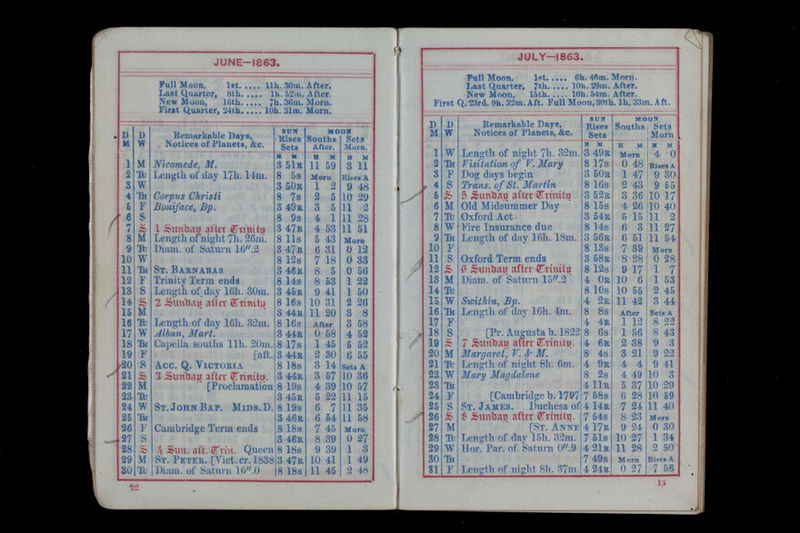 JUNE—1863.
Full Moon, 1st. .... 11h. 30m. After.
Last Quarter, 8th. .... 1h. 52m. After.
New Moon, 16th. .... 7h. 36m. Morn.
First Quarter, 24th. .... 10h. 31m. Morn.
D M D W Remarkable Days, Notices of Planets, &c. SUN Rises Sets MOON Souths After. Sets Morn.
H M H M H M
1 M Nicomede, M. 3 51R 11 59 3 11
2 Tu Length of day 17h. 14m. 8 5s Morn Rises A
3 W 3 50R 1 2 9 48
4 Th Corpus Christi 8 7s 2 5 10 29
5 F Boniface, Bp. 3 49R 3 5 11 2
6 S 8 9s 4 1 11 28
7 S 1 Sunday after Trinity 3 47R 4 53 11 51
8 M Length of night 7h. 26m. 8 11s 5 43 Morn
9 Tu Diam. of Saturn 16".2 3 47R 6 31 0 12
10 W 8 12s 7 18 0 33
11 Th ST. BARNABAS 3 46R 8 5 0 56
12 F Trinity Term ends 8 14s 8 53 1 22
13 S Length of day 16h. 30m. 3 45R 9 41 1 50
14 S 2 Sunday after Trinity 8 16s 10 31 2 26
15 M 3 44R 11 20 3 8
16 Tu Length of day 16h. 32m. 8 16s After 3 58
17 W Alban, Mart. 3 44R 0 58 4 52
18 Th Capella souths 11h. 20m. 8 17s 1 45 5 52
19 F [aft. 3 44R 2 30 6 55
20 S ACC. Q. VICTORIA 8 18s 3 14 Sets A
21 S 3 Sunday after Trinity. 3 44R 3 57 10 36
22 M [Proclamation 8 19s 4 39 10 57
23 Tu 3 45R 5 22 11 15
24 W ST. JOHN BAP. MIDS. D. 8 19s 6 7 11 35
25 Th 3 46R 6 54 11 58
26 F Cambridge Term ends 8 18s 7 45 Morn
27 S 3 46R 8 39 0 27
28 S 4 Sun. aft. Trin. Queen 8 18s 9 39 1 3
29 M ST. PETER. [Vict. cr. 1838 3 47R 10 41 1 49
30 Tu Diam. of Saturn 16".0 8 18s 11 45 2 48
12
JULY—1863.
Full Moon, 1st. .... 6h. 46m. Morn.
Last Quarter, 7th. .... 10h. 29m. After.
New Moon, 15th. .... 10h. 54m. After.
First Q. 23rd. 9h. 32m. Aft. Full Moon, 30th. 1h. 33m. Aft.
D M D W Remarkable Days, Notices of Planets, &c. SUN Rises Sets MOON Souths Sets Morn
H M H M H M
1 W Length of night 7h. 32m. 3 49R Morn 4 0
2 Th Visitation of V. Mary 8 17s 0 48 Rises A
3 F Dog days begin 3 50R 1 47 9 30
4 S Trans. of St. Martin 8 16s 2 43 9 55
5 S 5 Sunday after Trinity 3 52R 3 36 10 17
6 M Old Midsummer Day 8 15s 4 26 10 40
7 Tu Oxford Act 3 54R 5 15 11 2
8 W Fire Insurance due 8 14s 6 3 11 27
9 Th Length of day 16h. 18m. 3 56R 6 51 11 54
10 F 8 13s 7 39 Morn
11 S Oxford Term ends 3 58R 8 28 0 28
12 S 6 Sunday after Trinity 8 12s 9 17 1 7
13 M Diam. of Saturn 15".2 4 0R 10 6 1 53
14 Tu 8 10s 10 55 2 45
15 W Swithin, Bp. 4 2R 11 42 3 44
16 Th Length of day 16h. 4m. 8 8s After Sets A
17 F 4 4R 1 12 8 22
18 S [Pr. Augusta b. 1822 8 6s 1 56 8 43
19 S 7 Sunday after Trinity. 4 6R 2 38 9 3
20 M Margaret, V. & M. 8 4s 3 21 9 22
21 Tu Length of night 8h. 6m. 4 9R 4 4 9 41
22 W Mary Magdalene 8 2s 4 49 10 3
23 Th 4 11R 5 37 10 29
24 F [Cambridge b. 1797 7 58s 6 28 10 59
25 S ST. JAMES. Duchess of 4 14R 7 24 11 40
26 S 8 Sunday after Trinity. 7 54s 8 23 Morn
27 M [ST. ANNE 4 17R 9 24 0 30
28 Tu Length of day 15h. 32m. 7 51s 10 27 1 34
29 W Hor. Par. of Saturn 0".9 4 21R 11 28 2 50
30 Th 7 49s Morn Rises A
31 F Length of night 8h. 37m. 4 24R 0 27 7 56
13